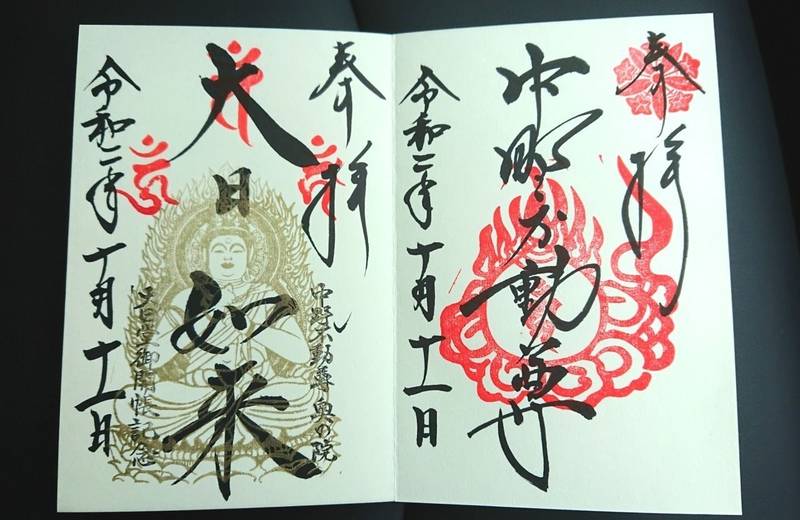 奉拝
中野不動尊
令和二年十月十一日
奉拝
中野不動尊奥の院
大日如来
御開帳記念
令和二年十月十一日